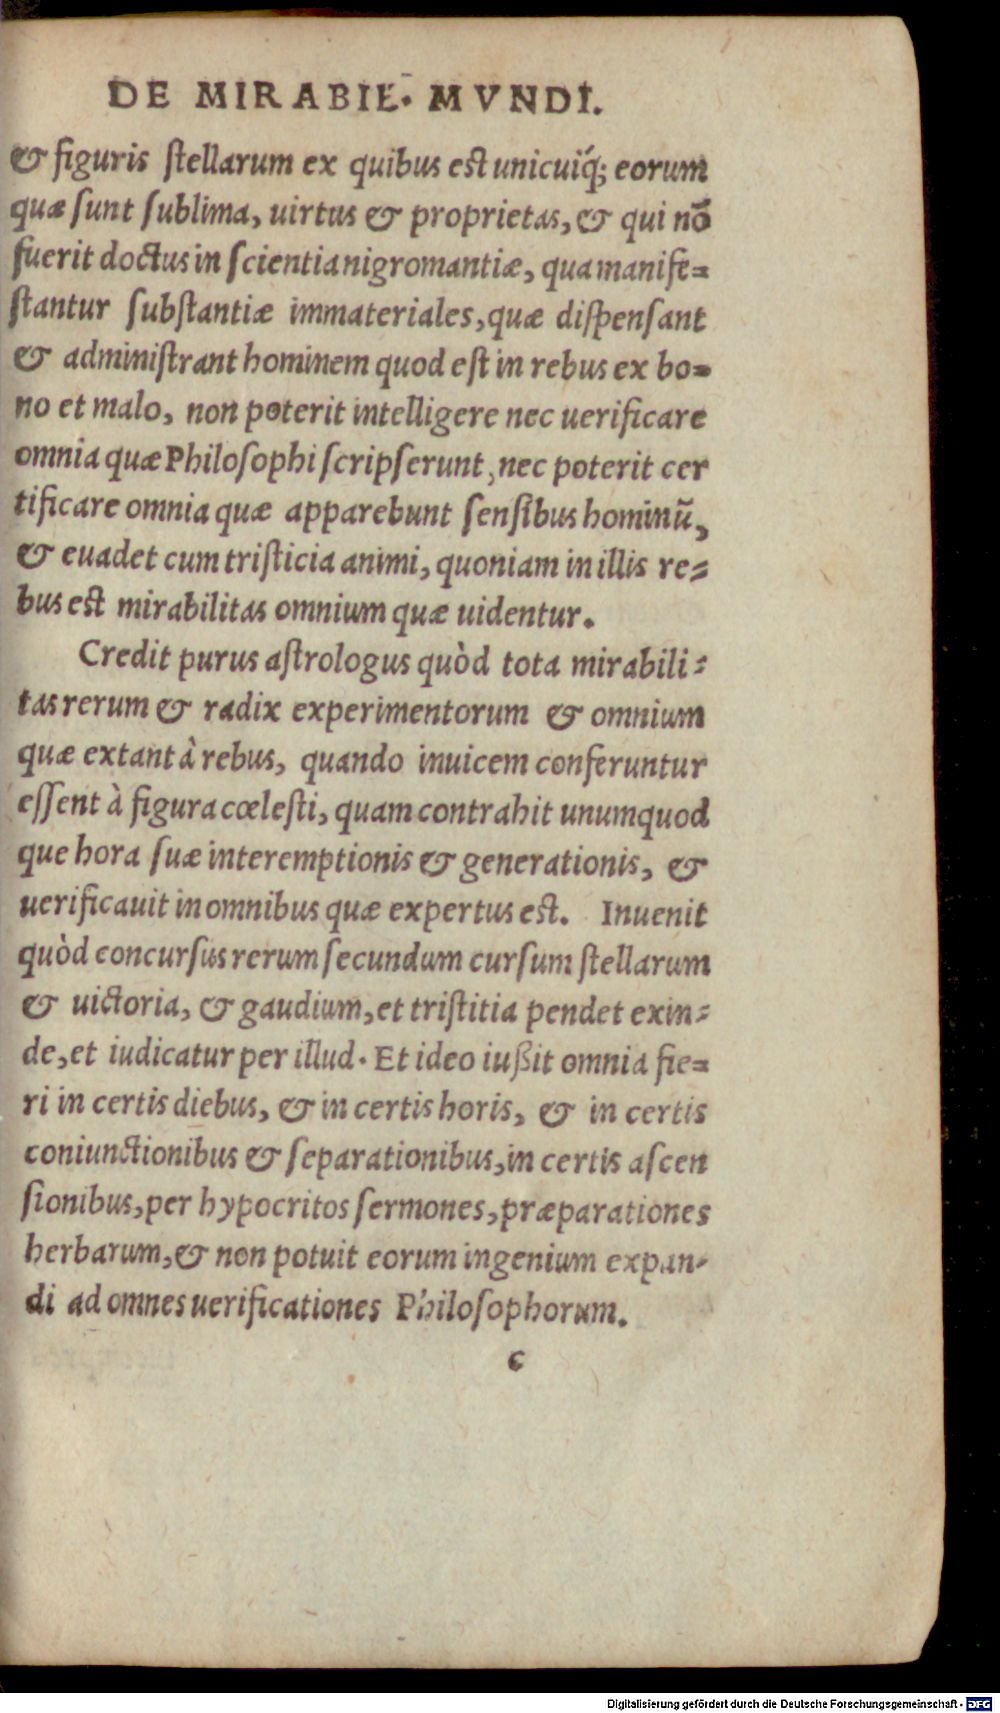 DE MIRABIL̄. MVNDI.
& figuris ſtellarum ex quibus eſt unicuiq́; eorum
quæ ſunt ſublima, uirtus & proprietas, & qui nō
fuerit doctus in ſcientia nigromantiæ, qua manife=
ſtantur ſubſtantiæ immateriales, quæ diſpenſant
& adminiſtrant hominem quod eſt in rebus ex bo=
no et malo, non poterit intelligere nec uerificare
omnia quæ Philoſophi ſcripſerunt, nec poterit cer
tificare omnia quæ apparebunt ſenſibus hominū,
& euadet cum triſticia animi, quoniam in illis re=
bus eſt mirabilitas omnium quæ uidentur.
Credit purus aſtrologus quòd tota mirabili=
tas rerum & radix experimentorum & omnium
quæ extant à rebus, quando inuicem conferuntur
eſſent à figura cœleſti, quam contrahit unumquod
que hora ſuæ interemptionis & generationis, &
uerificauit in omnibus quæ expertus eſt. Inuenit
quòd concurſus rerum ſecundum curſum ſtellarum
& uictoria, & gaudium, et triſtitia pendet exin=
de, et iudicatur per illud. Et ideo iußit omnia fie=
ri in certis diebus, & in certis horis, & in certis
coniunctionibus & ſeparationibus, in certis aſcen
ſionibus, per hypocritos ſermones, præparationes
herbarum, & non potuit eorum ingenium expan-
di ad omnes uerificationes Philoſophorum.
c
Digitalisierung gefördert durch die Deutsche Forschungsgemeinschaft - DFG